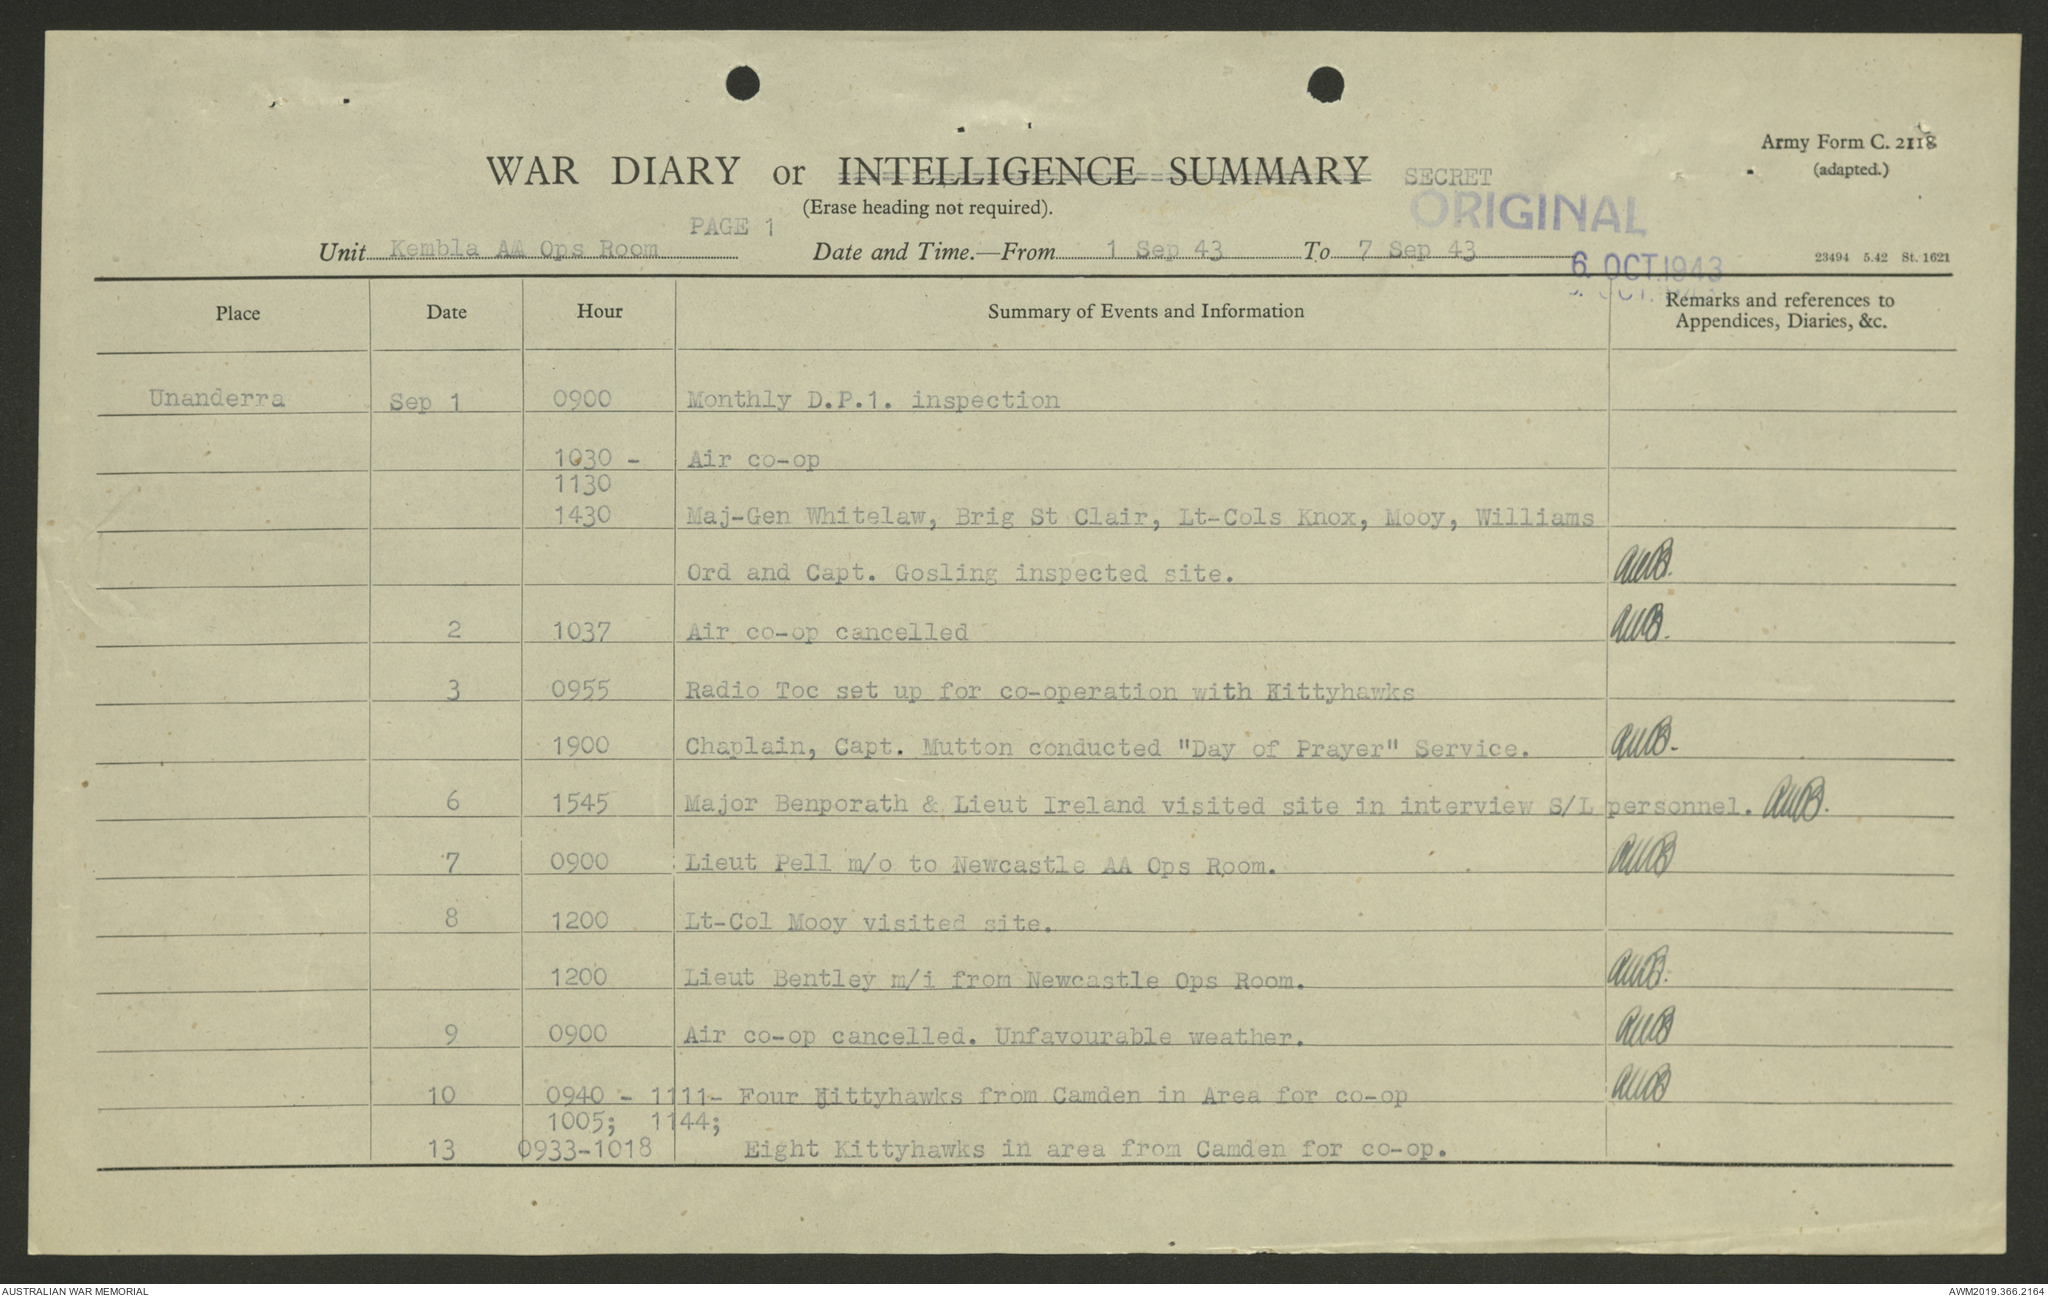 Army Form C. 2118
(adapted.)
WAR DIARY or INTELLIGENCE SUMMARY SECRET
(Erase heading not required).
ORIGINAL
PAGE 1
Unit Kembla AA Ops Room Date and Time.—From 1 Sep 43 To 7 Sep 43
6. OCT. 1943
23494 5.42 St. 1621
Place Date Hour Summary of Events and Information Remarks and references to
Appendices, Diaries, &c.
Unanderra Sep 1 0900 Monthly D.P.1. inspection
1030 - Air co-op
1130
1430 Maj-Gen Whitelaw, Brig St Clair, Lt-Cols Knox, Mooy, Williams
Ord and Capt. Gosling inspected site.
2 1037 Air co-op cancelled
3 0955 Radio Toc set up for co-operation with Kittyhawks
1900 Chaplain, Capt. Mutton conducted "Day of Prayer" Service.
6 1545 Major Benporath & Lieut Ireland visited site in interview S/L personnel.
7 0900 Lieut Pell m/o to Newcastle AA Ops Room.
8 1200 Lt-Col Mooy visited site.
1200 Lieut Bentley m/i from Newcastle Ops Room.
9 0900 Air co-op cancelled. Unfavourable weather.
10 0940 - 1111- Four Kittyhawks from Camden in Area for co-op
1005; 1144;
13 0933-1018 Eight Kittyhawks in area from Camden for co-op.
AUSTRALIAN WAR MEMORIAL AWM2019.366.2164